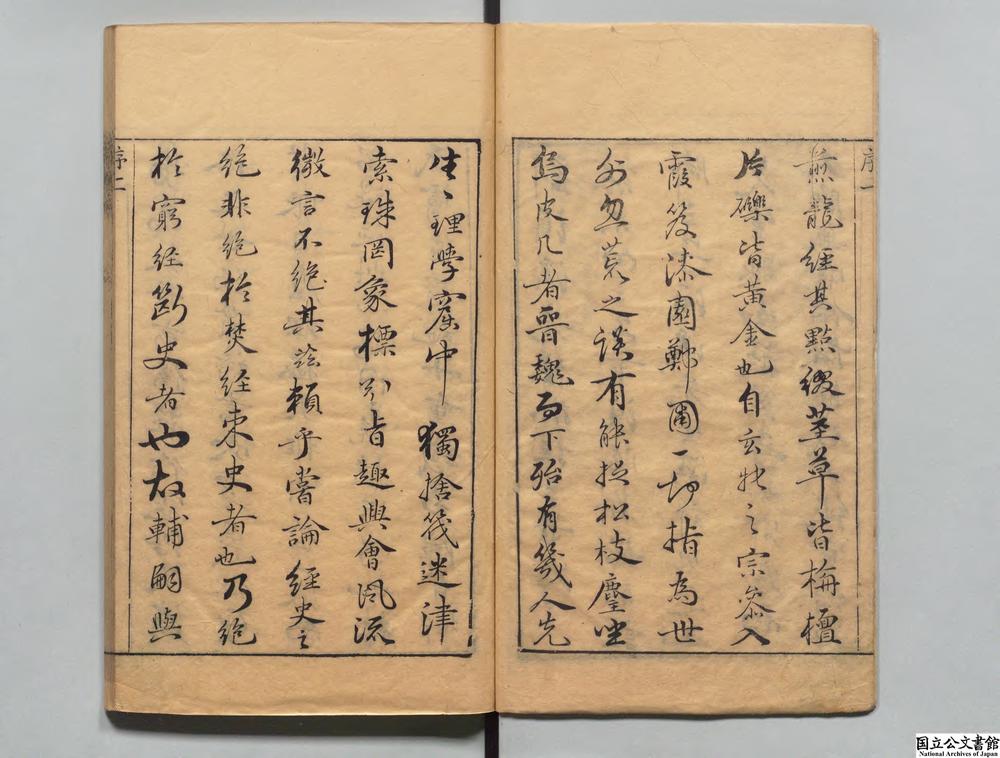 序一
龍經其點綴莖草皆栴檀
片礫皆黃金也自玄牝之宗參入
霞笈漆園鄭圃一切指為世
外忽荒之談有能捉松枝麈坐
烏皮几者晉魏而下殆有幾人先
生〻理學窟中獨捨筏迷津
索珠罔象標引旨趣興會風流
微言不絕其玆賴乎嘗論經史之
絕非絕於焚經束史者也乃絕
於窮經斷史者也故輔嗣與
序二
国立公文書館
National Archives of Japan